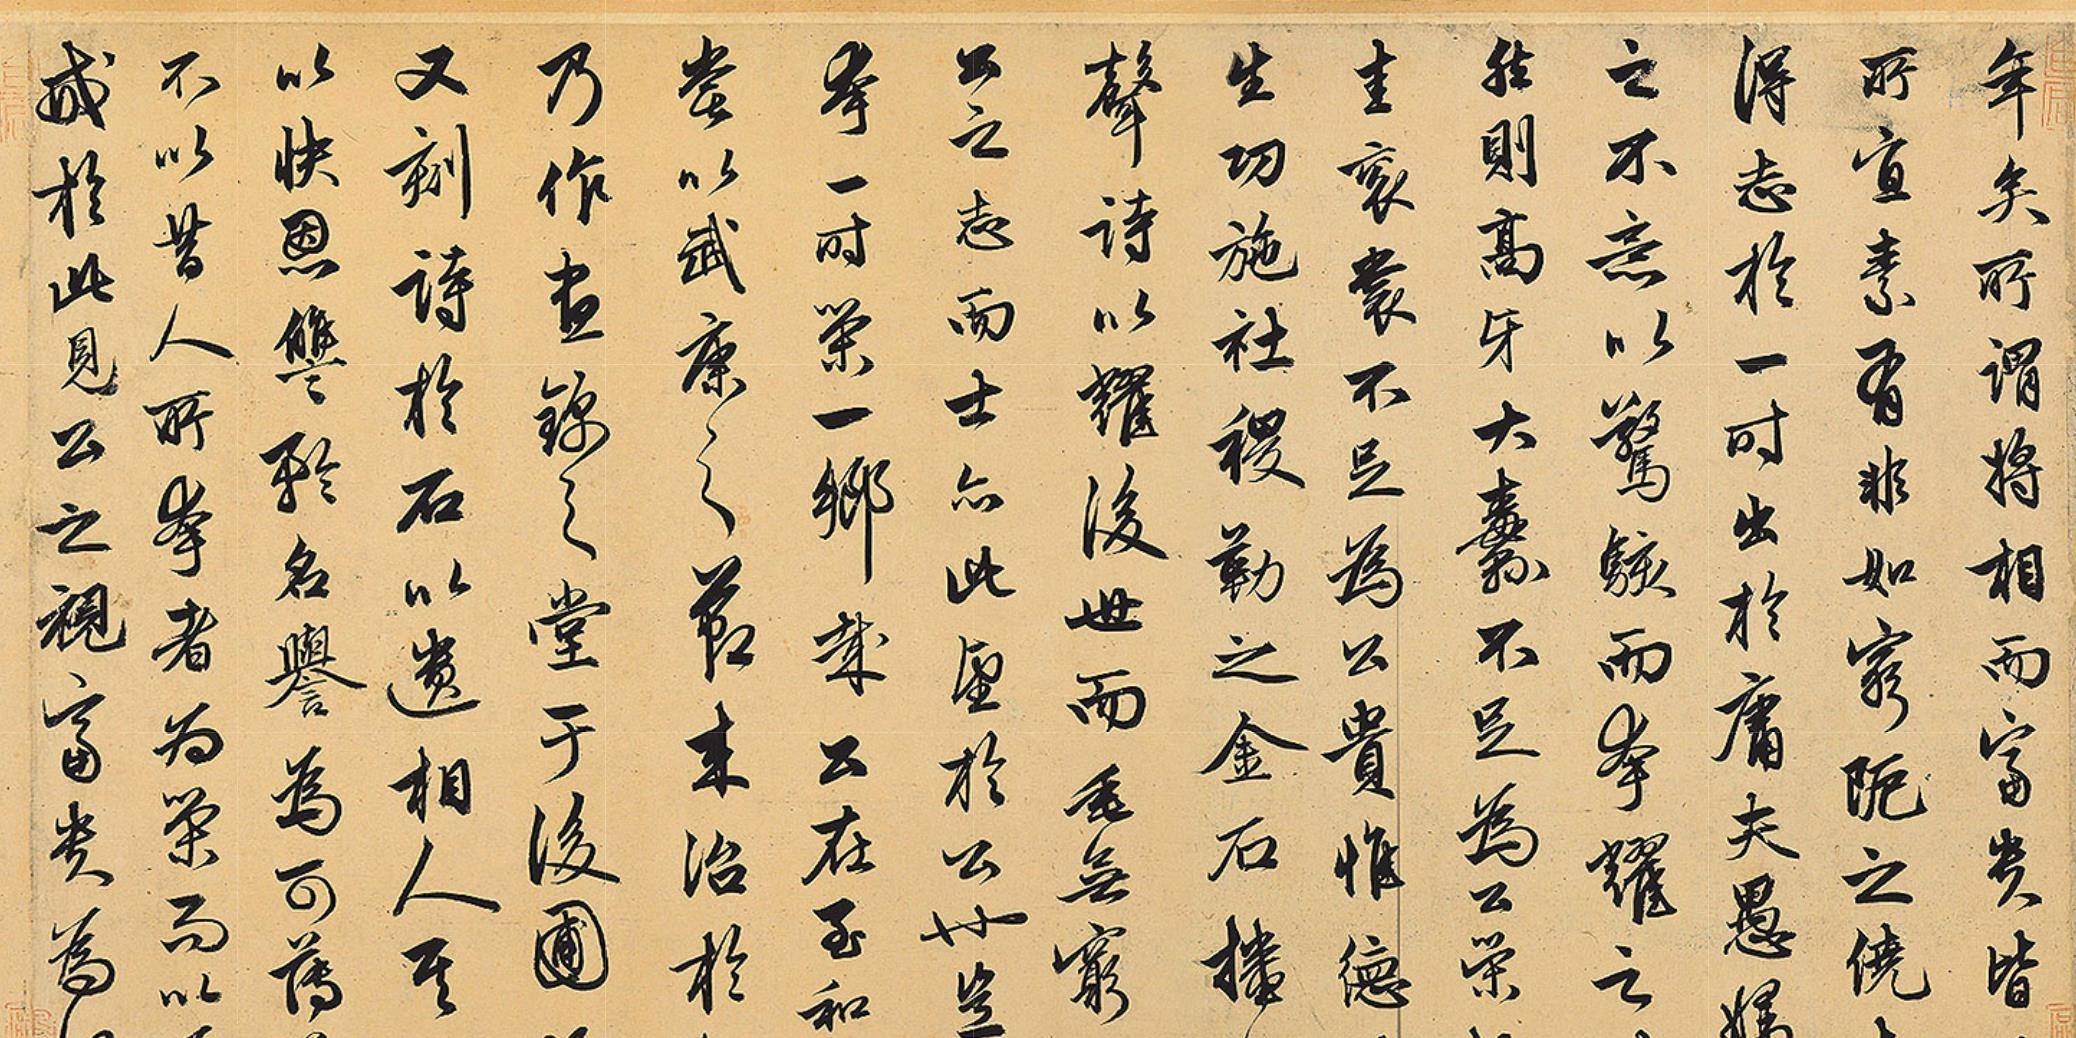 年矣所謂將相而富貴皆
所宜素有非如窮阨之僥
得志於一时出於庸夫愚婦
之不意以驚駭而夸耀之
然則高牙大纛不足為公榮
圭袞裳不足為公貴惟德
生功施社稷勒之金石播
聲詩以耀後世而垂無窮
公之志而士亦此望於公也豈
夸一时榮一鄉哉公在至和
嘗以武康之節来治於
乃作晝錦之堂于後圃
又刻詩於石以遺相人其
以快恩讐矜名譽為可薄
不以昔人所夸者为榮而以
戒於此見公之視富貴為